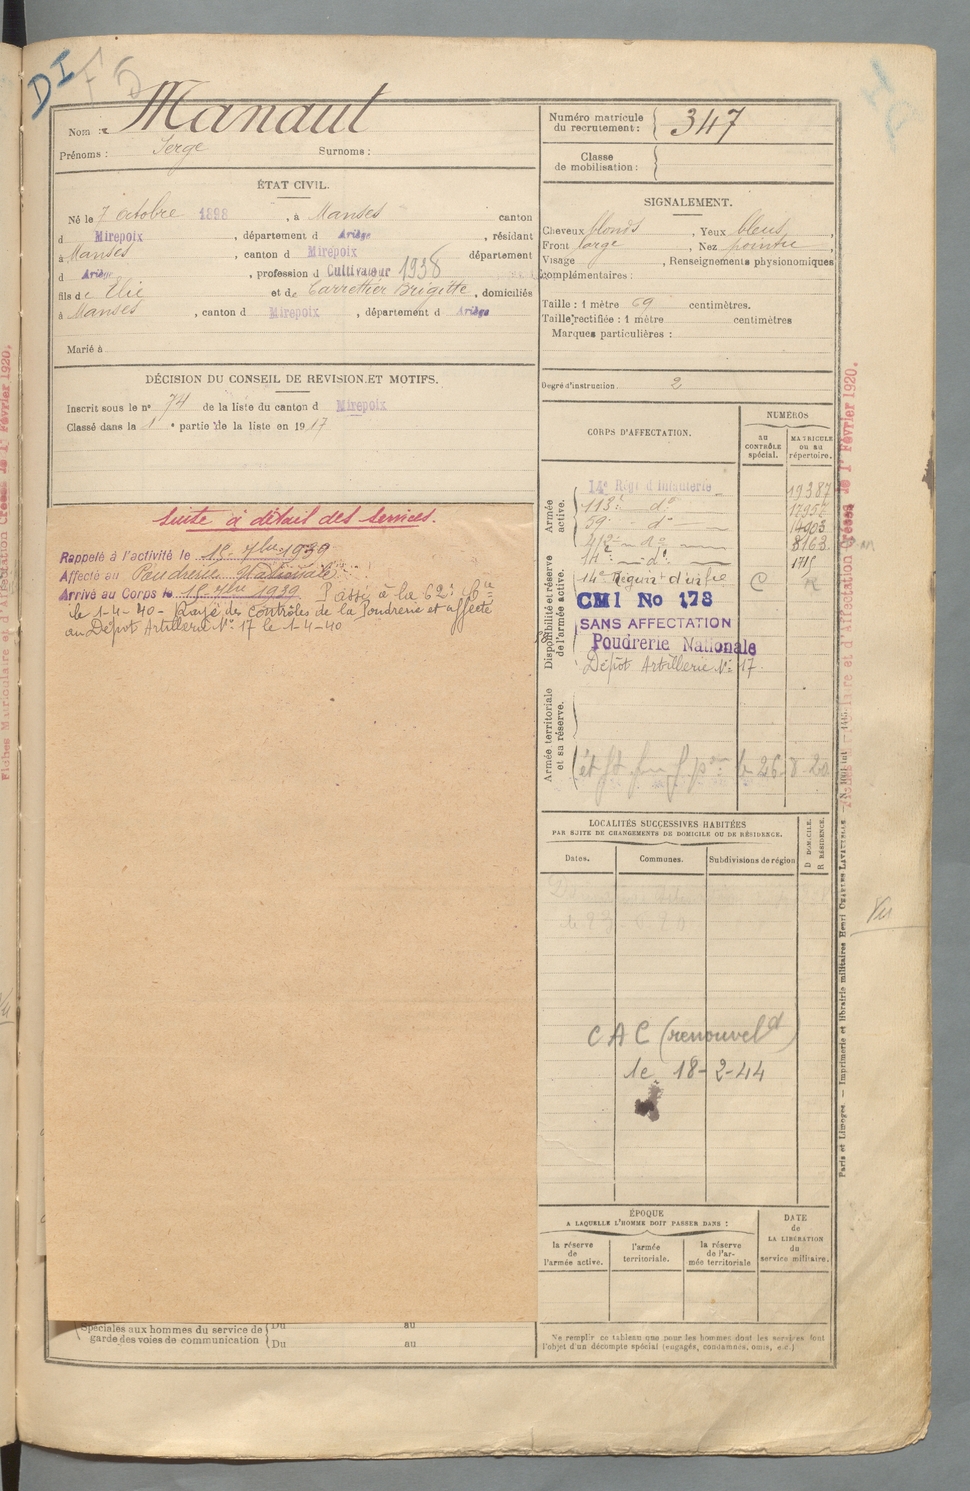 DI
Nom : Manaut
Prénoms : Serge Surnoms :
ÉTAT CIVIL.
Né le 7 octobre 1898, à Manses canton
d Mirepoix, département d Ariège, résidant
à Manses, canton d Mirepoix département
d Ariège, profession d Cultivateur 1938
fils de Elie et de Carrettier Brigitte, domiciliés
à Manses, canton d Mirepoix, département d Ariège
Marié à
DÉCISION DU CONSEIL DE REVISION ET MOTIFS.
Inscrit sous le n° 74 de la liste du canton d Mirepoix
Classé dans la 1e partie de la liste en 1917
Suite à détail des services.
Rappelé à l'activité le 1er 7bre 1939
Affecté au Poudrerie Nationale
Arrivé au Corps le 1er 7bre 1939 Passé à la 62e
le 1-4-40 - Rayé des contrôles de la Poudrerie et affecté
au Dépôt Artillerie N° 17 le 1-4-40
Spéciales aux hommes du service de
garde des voies de communication
Du au
Du au
Numéro matricule
du recrutement : 347
Classe
de mobilisation :
SIGNALEMENT.
Cheveux blonds, Yeux bleus,
Front large, Nez pointu,
Visage, Renseignements physionomiques
complémentaires :
Taille : 1 mètre 69 centimètres.
Taille rectifiée : 1 mètre centimètres
Marques particulières :
Degré d'instruction. 2
CORPS D'AFFECTATION.
NUMÉROS
au
CONTRÔLE
spécial.
MATRICULE
ou au
répertoire.
Armée
active.
14e Régt d'Infanterie 19387
113e do 17957
59e do 14903
412e do 8163
14e do 1715
Disponibilité et réserve
de l'armée active.
14e Régim't d'infie C R
CMI No 178
SANS AFFECTATION
Poudrerie Nationale
Dépôt Artillerie N° 17.
Armée territoriale
et sa réserve.
LOCALITÉS SUCCESSIVES HABITÉES
PAR SUITE DE CHANGEMENTS DE DOMICILE OU DE RÉSIDENCE.
Dates.
Communes.
Subdivisions de région
D DOMICILE.
R RÉSIDENCE.
CAC (renouvel d)
le 18-2-44
ÉPOQUE
A LAQUELLE L'HOMME DOIT PASSER DANS :
la réserve
de
l'armée active.
l'armée
territoriale.
la réserve
de l'ar-
mée territoriale
DATE
de
LA LIBÉRATION
du
service militaire.
Ne remplir ce tableau que pour les hommes dont les services font
l'objet d'un décompte spécial (engagés, condamnés, omis, e.c.)
Paris et Limoges. — Imprimerie et librairie militaires Henri CHARLES-LAVAUZELLE
Vu